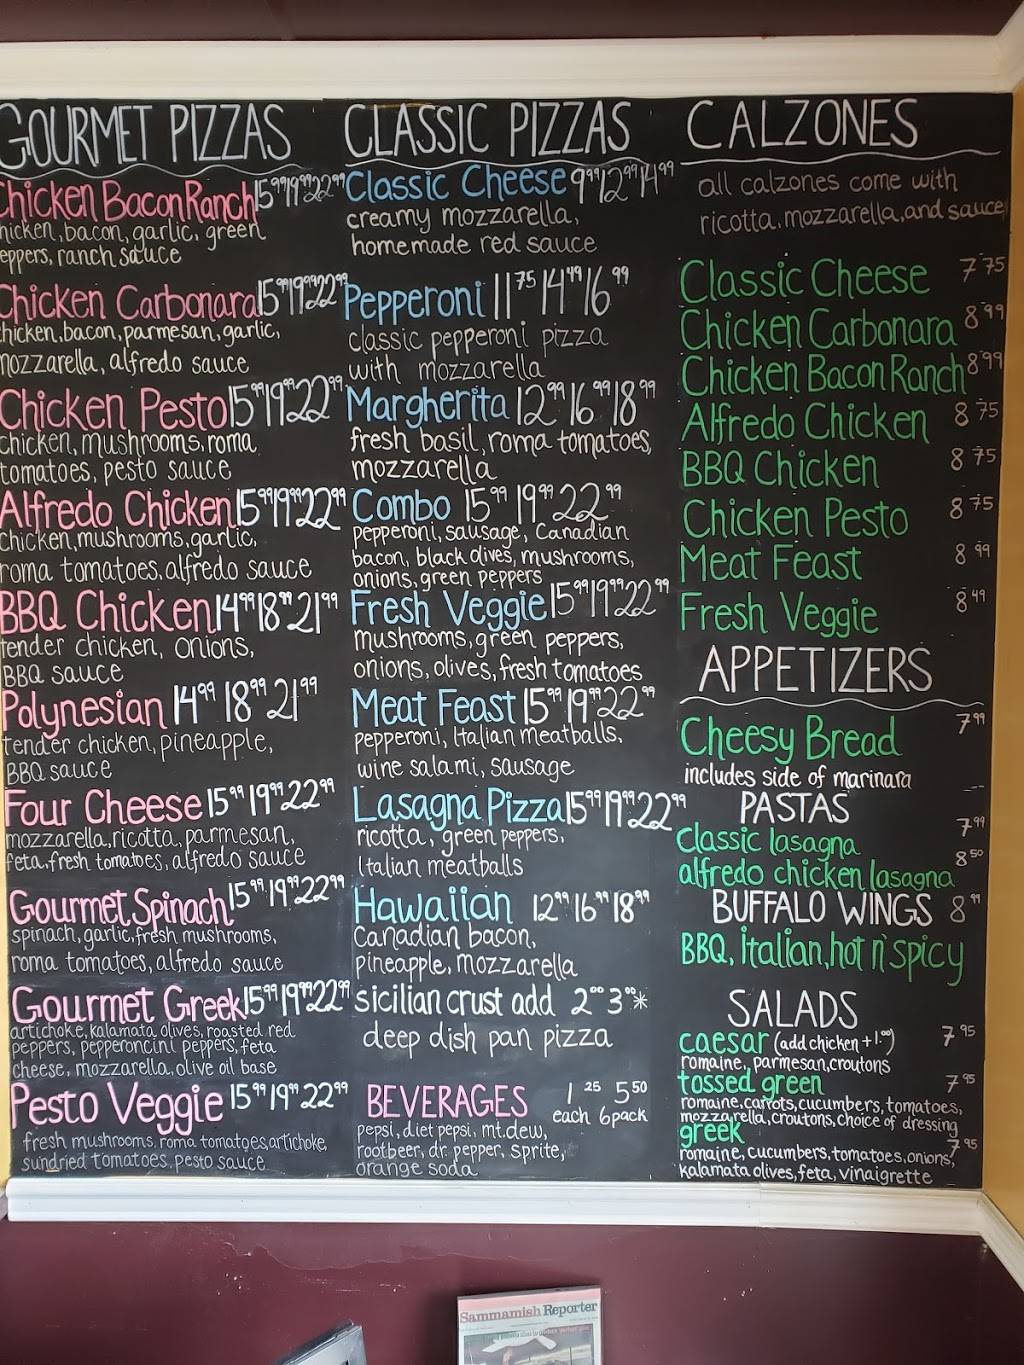 GOURMET PIZZAS
Chicken Bacon Ranch 15⁹⁹ 19⁹⁹ 22⁹⁹
hicken, bacon, garlic, green
eppers, ranch sauce
Chicken Carbonara 15⁹⁹ 19⁹⁹ 22⁹⁹
chicken, bacon, parmesan, garlic,
mozzarella, alfredo sauce
Chicken Pesto 15⁹⁹ 19⁹⁹ 22⁹⁹
chicken, mushrooms, roma
tomatoes, pesto sauce
Alfredo Chicken 15⁹⁹ 19⁹⁹ 22⁹⁹
chicken, mushrooms, garlic,
roma tomatoes, alfredo sauce
BBQ Chicken 14⁹⁹ 18⁹⁹ 21⁹⁹
tender chicken, onions,
BBQ sauce
Polynesian 14⁹⁹ 18⁹⁹ 21⁹⁹
tender chicken, pineapple,
BBQ sauce
Four Cheese 15⁹⁹ 19⁹⁹ 22⁹⁹
mozzarella, ricotta, parmesan,
feta, fresh tomatoes, alfredo sauce
Gourmet Spinach 15⁹⁹ 19⁹⁹ 22⁹⁹
spinach, garlic, fresh mushrooms,
roma tomatoes, alfredo sauce
Gourmet Greek 15⁹⁹ 19⁹⁹ 22⁹⁹
artichoke, kalamata olives, roasted red
peppers, pepperoncini peppers, feta
cheese, mozzarella, olive oil base
Pesto Veggie 15⁹⁹ 19⁹⁹ 22⁹⁹
fresh mushrooms, roma tomatoes, artichoke,
sundried tomatoes, pesto sauce
CLASSIC PIZZAS
Classic Cheese 9⁹⁹ 12⁹⁹ 14⁹⁹
creamy mozzarella,
homemade red sauce
Pepperoni 11⁷⁵ 14⁴⁹ 16⁹⁹
classic pepperoni pizza
with mozzarella
Margherita 12⁹⁹ 16⁹⁹ 18⁹⁹
fresh basil, roma tomatoes,
mozzarella
Combo 15⁹⁹ 19⁹⁹ 22⁹⁹
pepperoni, sausage, Canadian
bacon, black olives, mushrooms,
onions, green peppers
Fresh Veggie 15⁹⁹ 19⁹⁹ 22⁹⁹
mushrooms, green peppers,
onions, olives, fresh tomatoes
Meat Feast 15⁹⁹ 19⁹⁹ 22⁹⁹
pepperoni, Italian meatballs,
wine salami, sausage
Lasagna Pizza 15⁹⁹ 19⁹⁹ 22⁹⁹
ricotta, green peppers,
Italian meatballs
Hawaiian 12⁹⁹ 16⁹⁹ 18⁹⁹
Canadian bacon,
pineapple, mozzarella
sicilian crust add 2⁰⁰ 3⁰⁰*
deep dish pan pizza
BEVERAGES 1²⁵ 5⁵⁰
each 6pack
pepsi, diet pepsi, mt.dew,
rootbeer, dr. pepper, sprite,
orange soda
CALZONES
all calzones come with
ricotta, mozzarella, and sauce
Classic Cheese 7⁷⁵
Chicken Carbonara 8⁹⁹
Chicken Bacon Ranch 8⁹⁹
Alfredo Chicken 8⁷⁵
BBQ Chicken 8⁷⁵
Chicken Pesto 8⁷⁵
Meat Feast 8⁹⁹
Fresh Veggie 8⁴⁹
APPETIZERS
Cheesy Bread 7⁹⁹
includes side of marinara
PASTAS
Classic lasagna 7⁹⁹
alfredo chicken lasagna 8⁵⁰
BUFFALO WINGS 8⁹⁹
BBQ, italian, hot n' spicy
SALADS
caesar (add chicken +1.⁰⁰) 7⁹⁵
romaine, parmesan, croutons
tossed green 7⁹⁵
romaine, carrots, cucumbers, tomatoes,
mozzarella, croutons, choice of dressing
greek 7⁹⁵
romaine, cucumbers, tomatoes, onions,
kalamata olives, feta, vinaigrette
Sammamish Reporter